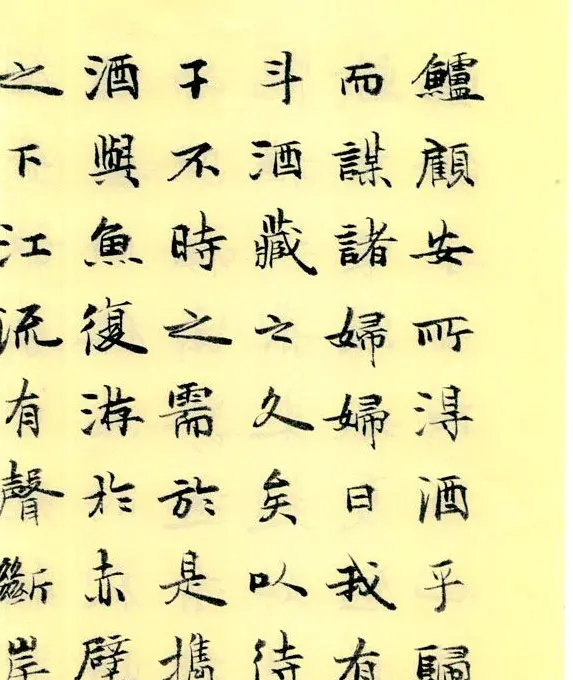 鱸顧安所得酒乎歸
而謀諸婦婦曰我有
斗酒藏之久矣以待
子不時之需於是攜
酒與魚復游於赤壁
之下江流有聲斷岸